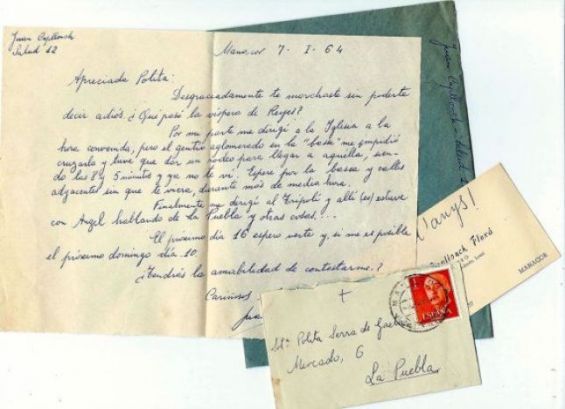 Juan
Salud 12
Manacor 7 - I - 64
Apreciada Polita:
Desgraciadamente te marchaste sin poderte
decir adiós. ¿Qué pasó la víspera de Reyes?
Por mi parte me dirigí a la Iglesia a la
hora convenida, pero el gentío aglomerado en la "bassa" me impidió
cruzarla y tuve que dar un rodeo para llegar a aquella, sien-
do las 8 y 5 minutos y ya no te vi. Esperé por la bassa y calles
adyacentes sin que te viera, durante más de media hora.
Finalmente me dirigí al Trípoli y allí (es) estuve
con Angel hablando de La Puebla y otras cosas!...
El próximo día 16 espero verte y, si no es posible
el próximo domingo día 10.
¿Tendrás la amabilidad de contestarme?
Cariños
Juan
anys!
Flexó
MANACOR
ESPAÑA
Srta. Polita Serra de
Mercado, 6
La Puebla